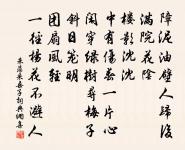 障泥油壁人歸後
滿院花陰
樓影沈沈
中有傷春一片心
閑穿綠樹尋梅子
斜日籠明
團扇風輕
一徑楊花不避人
朱藻采桑子